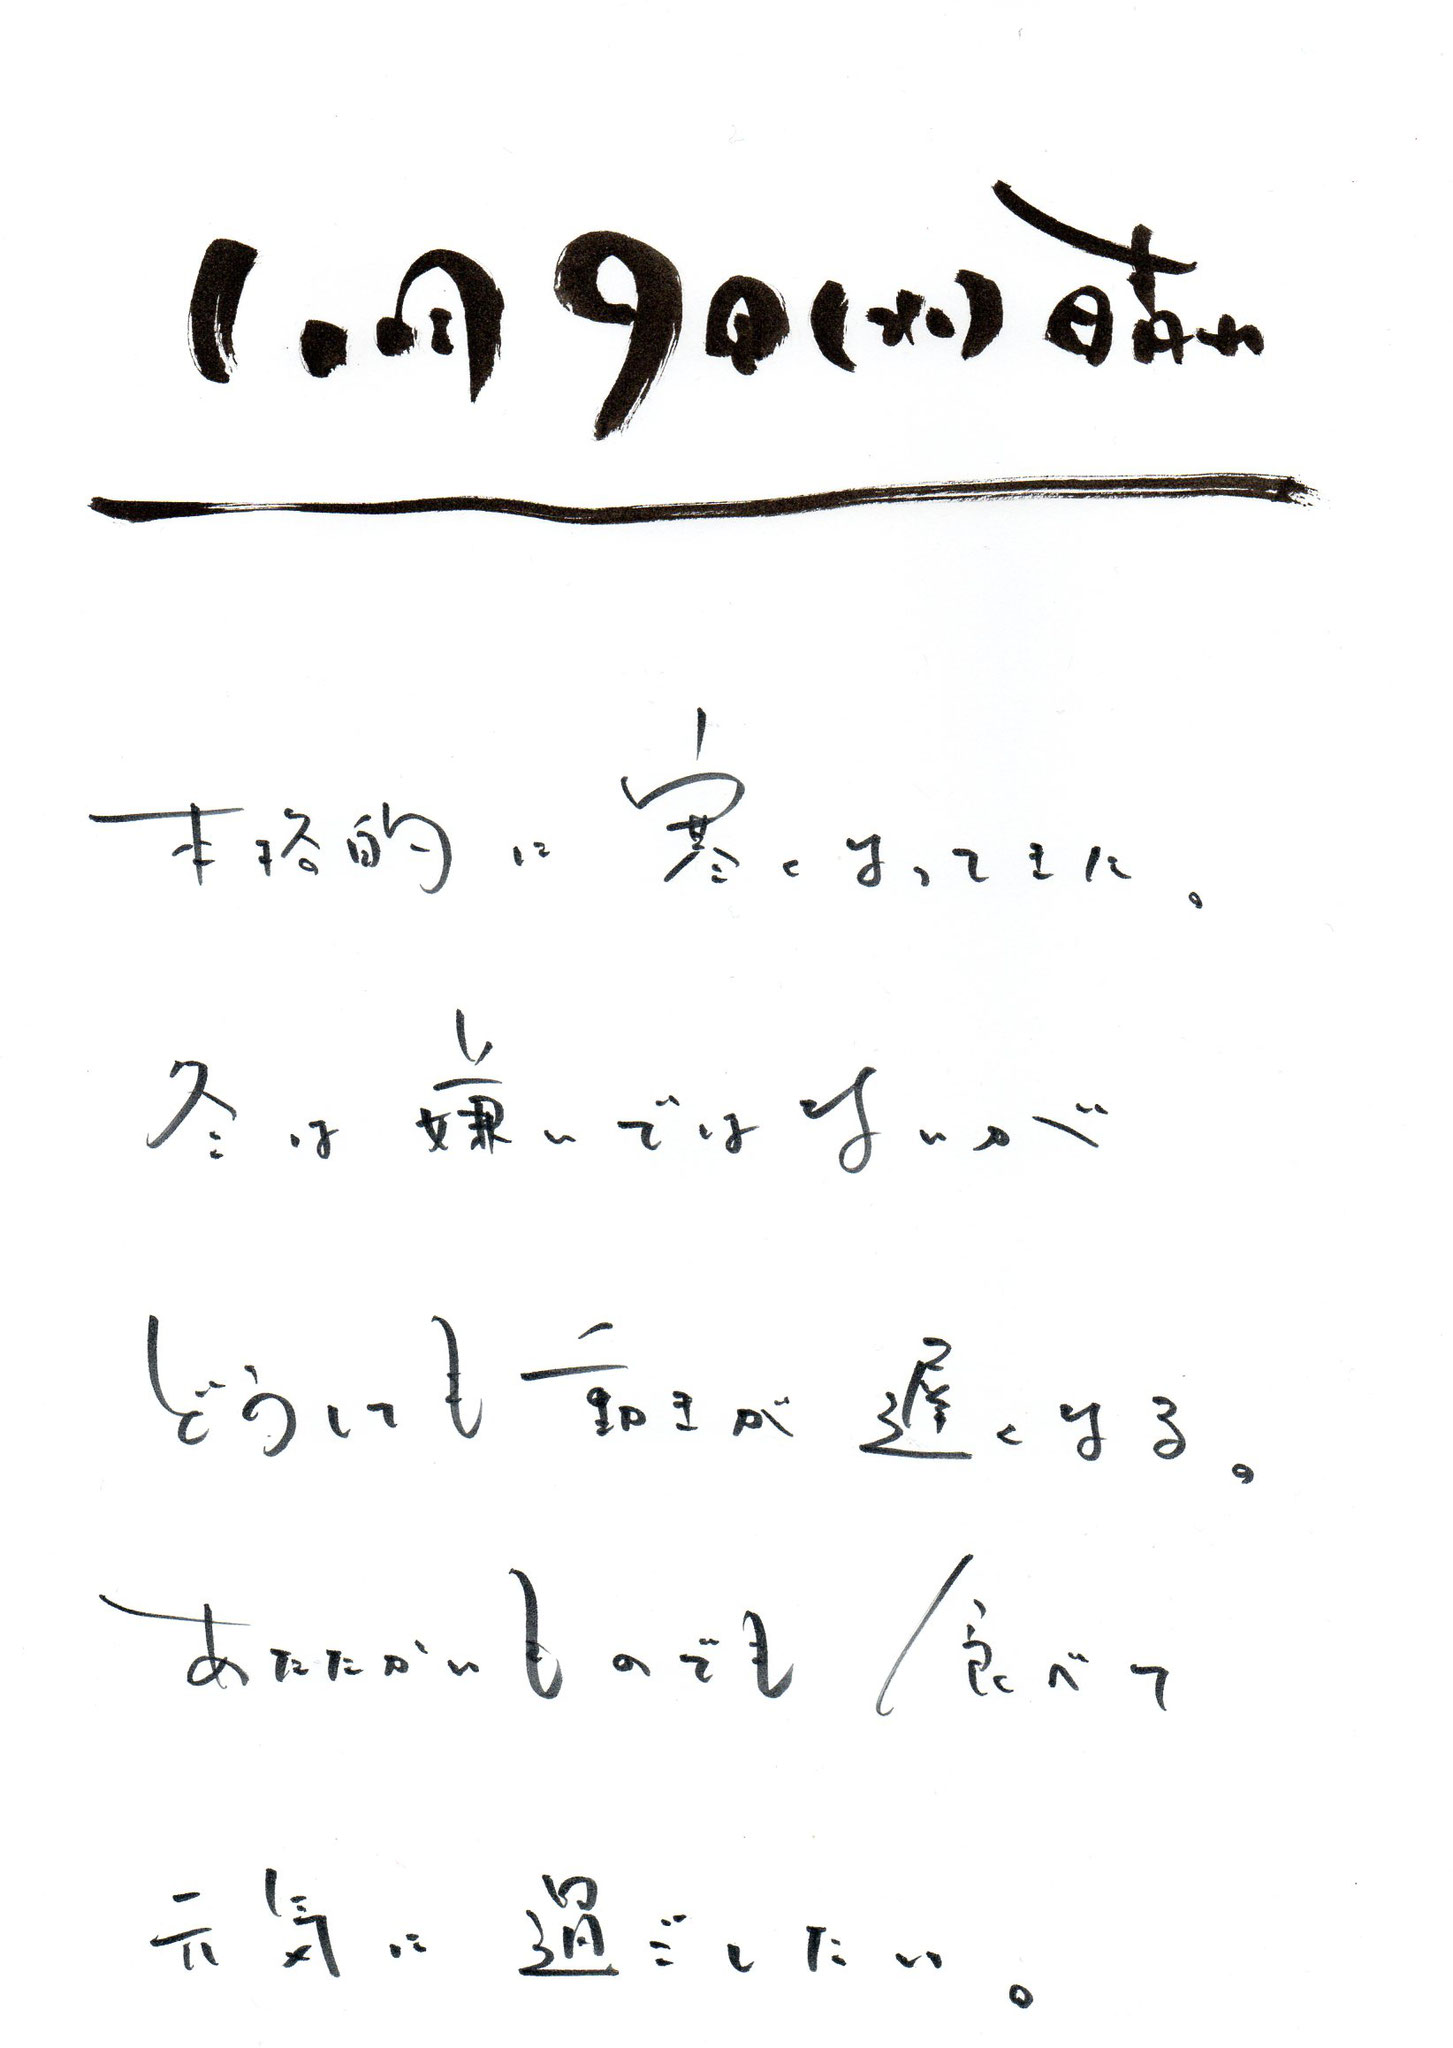 1月9日(水)晴れ
本格的に寒くなってきた。
冬は嫌いではないが
どうしても動きが遅くなる。
あたたかいものでも食べて
元気に過ごしたい。